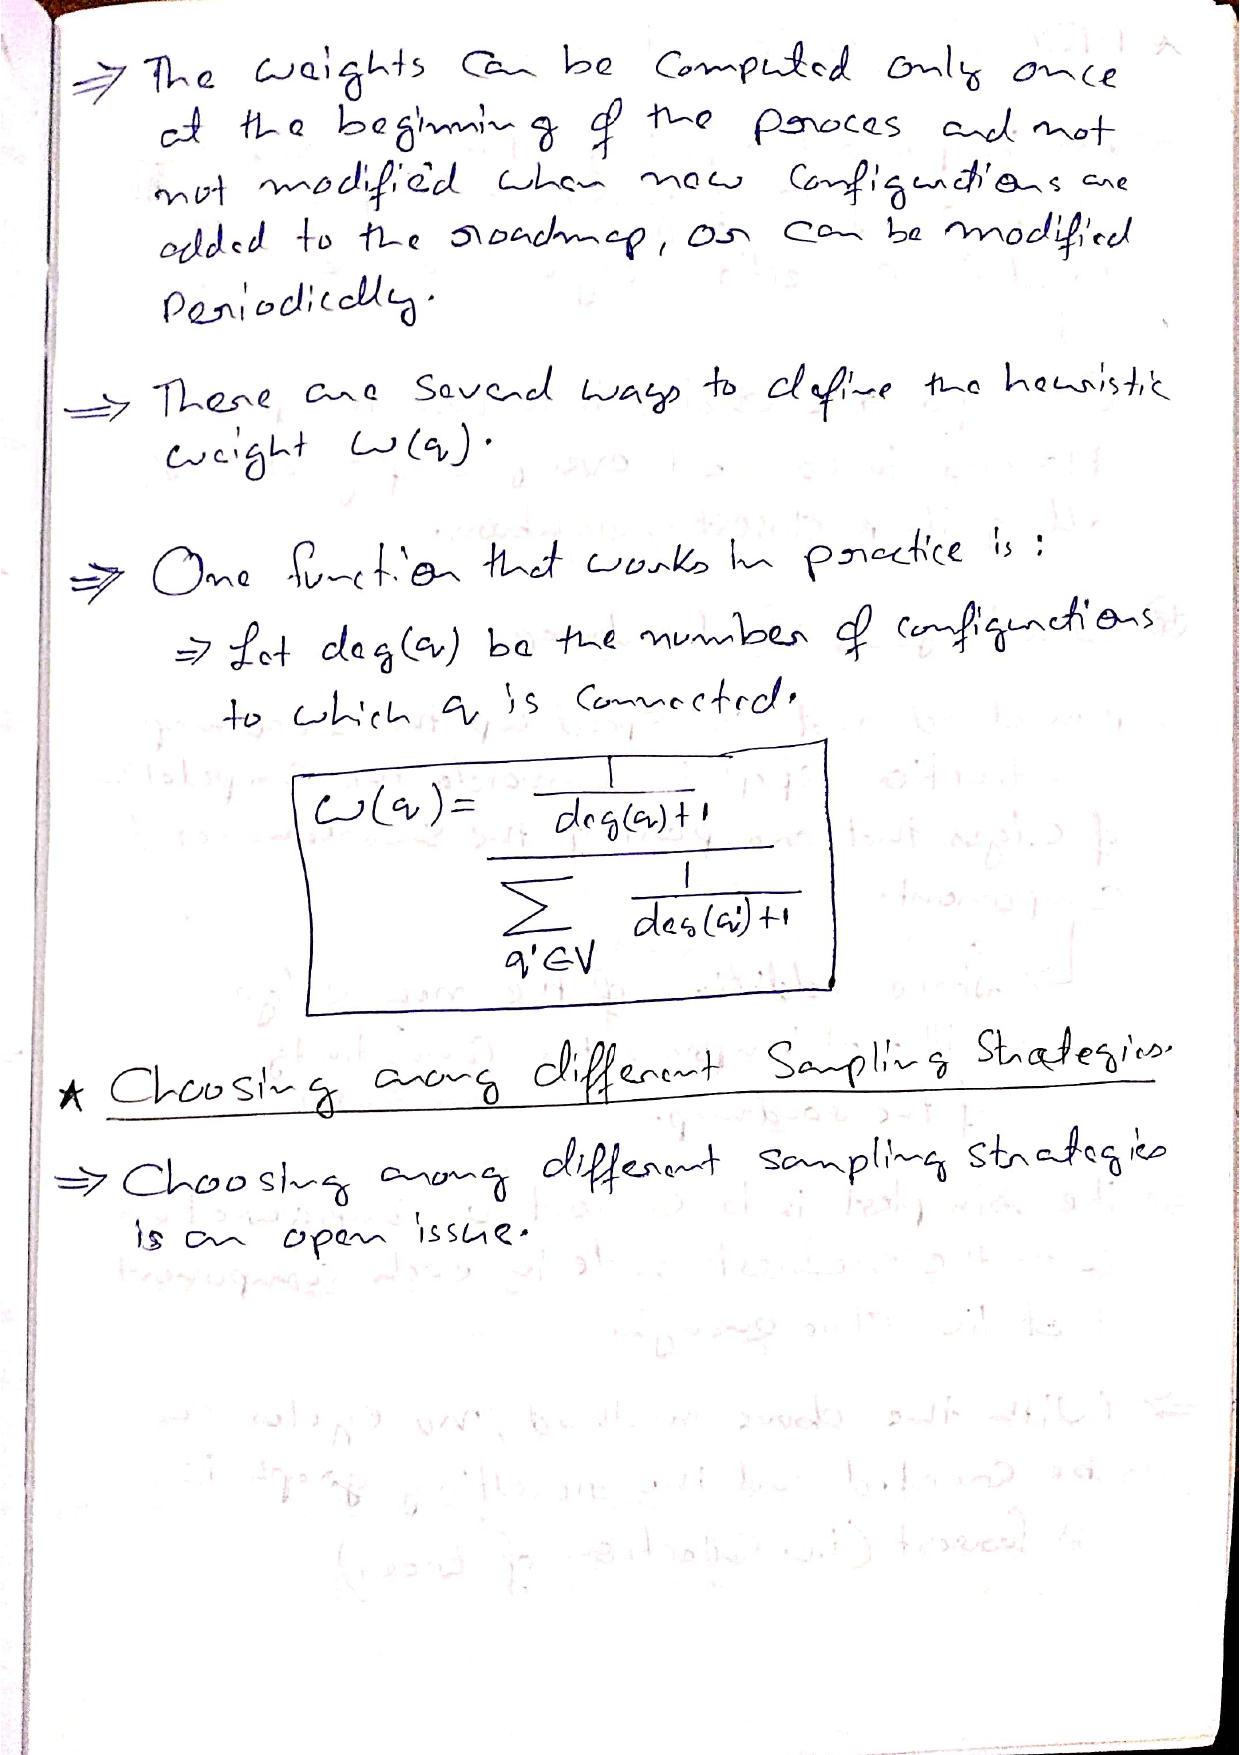 ⇒ The weights can be computed only once
at the beginning of the proces and not
not modified when new configurations are
added to the roadmap, or can be modified
periodically.
⇒ There are several ways to define the heuristic
weight w(q).
⇒ One function that works in practice is :
⇒ Let deg(q) be the number of configurations
to which q is connected.
w(q) = 1
deg(q)+1
∑ 1
deg(q')+1
q'∈V
★ Choosing among different Sampling Strategies.
⇒ Choosing among different sampling strategies
is an open issue.